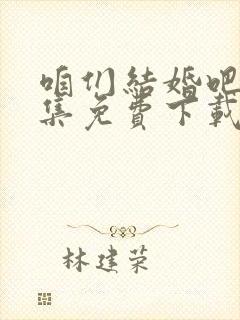 咱们結婚吧
集免費下載
林建荣